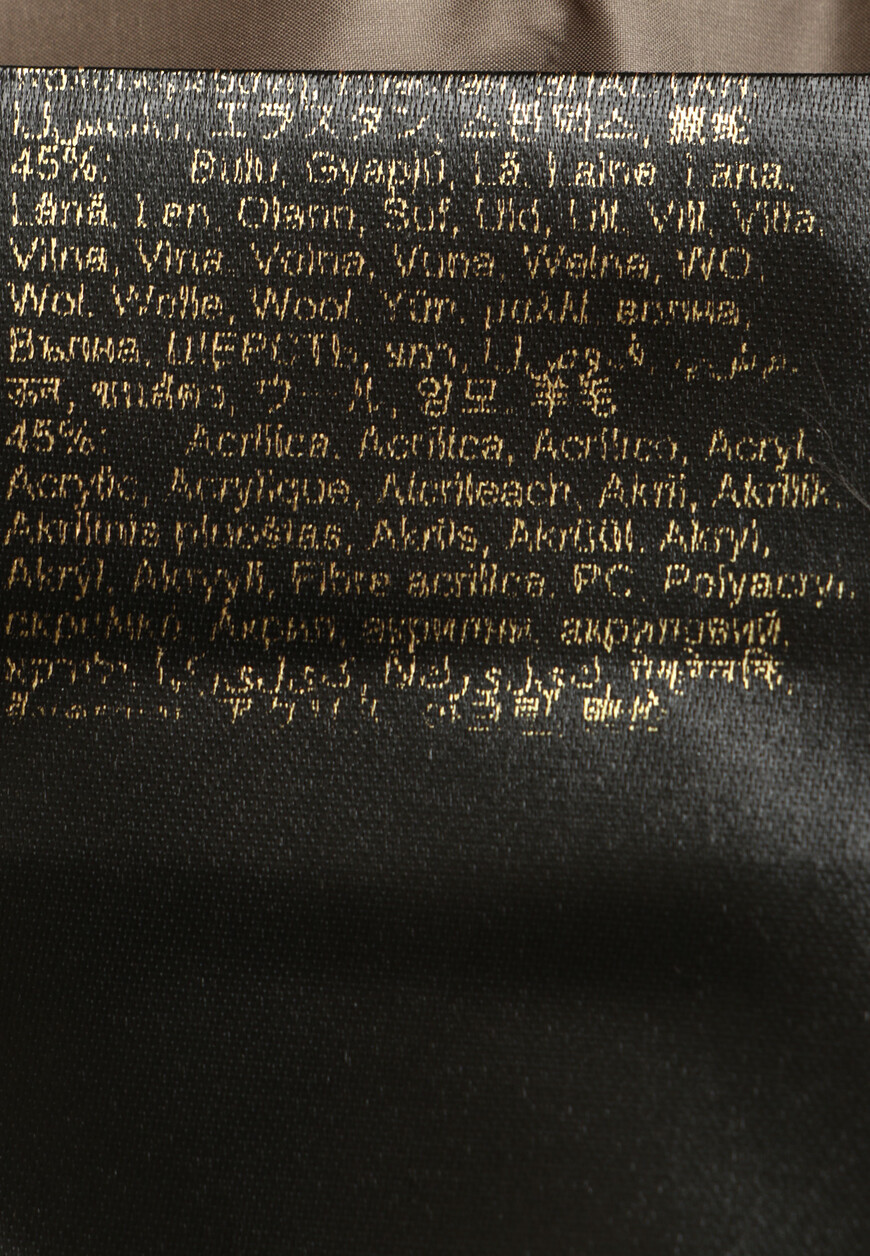 エラスタン, 스판덱스,
45%: Bulu, Gyapjú, Lã, Laine, Lana,
Lână, Len, Olann, Sof, Uld, Ull, Vill, Villa,
Vilna, Vlna, Volna, Vuna, Wełna, WO,
Wol, Wolle, Wool, Yün, μαλλί, вълна,
Вълна, ШЕРСТЬ, צמר,
ऊन, ขนสัตว์, ウール, 양모, 羊毛
45%: Acrilica, Acrílica, Acrílico, Acryl,
Acrylic, Acrylique, Aicrileach, Akril, Akrilik,
Akrilinis pluoštas, Akrils, Akrüül, Akryl,
Akrýl, Akryyli, Fibre acrilica, PC, Polyacryl,
ακρυλικό, Акрил, акрилни, акриловий,
アクリル, 아크릴